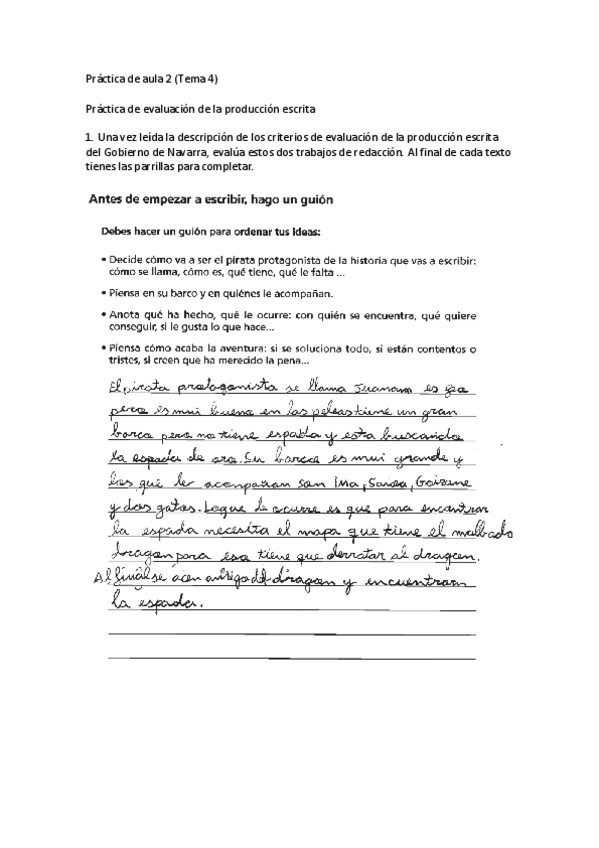 Práctica de aula 2 (Tema 4)
Práctica de evaluación de la producción escrita
1. Una vez leída la descripción de los criterios de evaluación de la producción escrita
del Gobierno de Navarra, evalúa estos dos trabajos de redacción. Al final de cada texto
tienes las parrillas para completar.
Antes de empezar a escribir, hago un guión
Debes hacer un guión para ordenar tus ideas:
• Decide cómo va a ser el pirata protagonista de la historia que vas a escribir:
cómo se llama, cómo es, qué tiene, qué le falta ...
• Piensa en su barco y en quiénes le acompañan.
• Anota qué ha hecho, qué le ocurre: con quién se encuentra, qué quiere
conseguir, si le gusta lo que hace...
• Piensa cómo acaba la aventura: si se soluciona todo, si están contentos o
tristes, si creen que ha merecido la pena...
El pirata protagonista se llama es
pero es mui bueno en las peleas tiene un gran
barco pero no tiene espada y esta buscando
la espada de oro. Su barco es mui grande y
los que le acompañan son Ima, Goizane
y dos gatos. Loque le ocurre es que para encontrar
la espada necesita el mapa que tiene el malbado
dragon para eso tiene que derrotar al dragon.
Al final se acen amigo del dragon y encuentran
la espada.